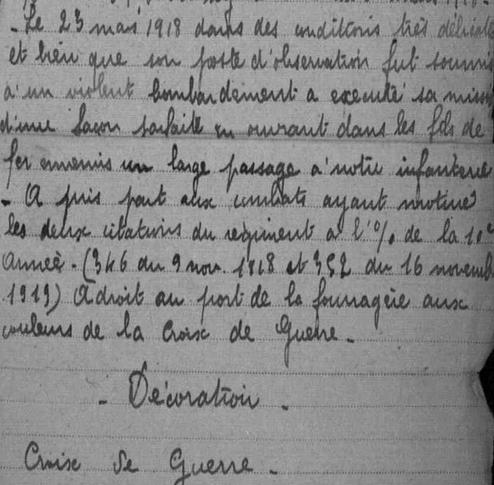 - Le 23 mai 1918 dans des conditions très délicate
et bien que son poste d'observation fut soumis
à un violent bombardement a executé sa missi
d'une façon parfaite en ouvrant dans les fils de
fer ennemis un large passage à notre infanterie
- A pris part aux combats ayant motivé
les deux citations du regiment a l'% de la 10e
Année. (346 du 9 nov. 1918 et 352 du 16 novemb
1919) A droit au port de la fourragère aux
couleurs de la Croix de Guerre.-
- Décoration -
Croix de Guerre -